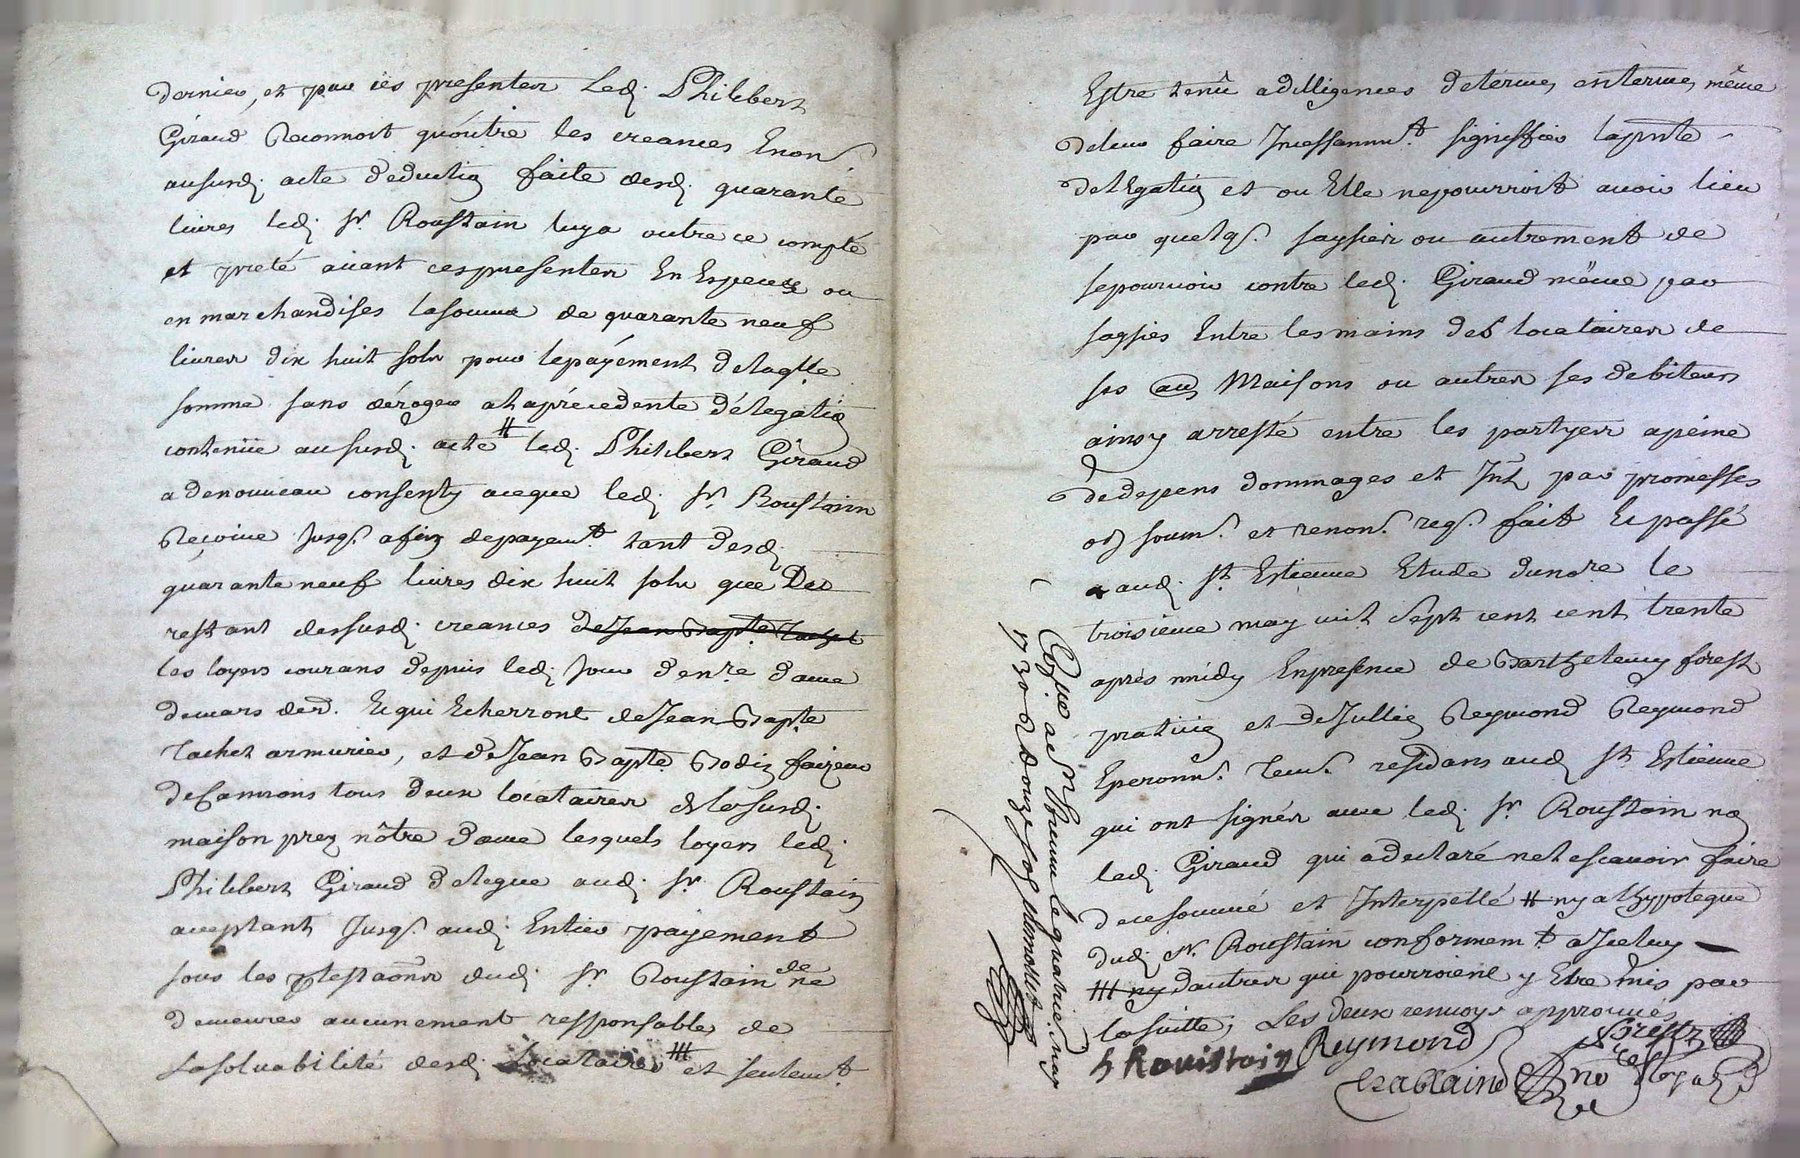 dernier, et par ces presentes Led. Philibert
Giraud Reconnoit qu'outre les creances Enon
aususd. acte deduction faite desd. quarante
livres led. Sr. Roustain luy a outre ce compté
et preté avant ces presentes En Espece ou
en marchandises la somme de quarante neuf
livres dix huit sols pour le payément de laqlle
somme sans déroger a la précedente délegation
contenüe au susd. acte # led. Philibert Giraud
a denouveau consenty aceque led. Sr. Roustain
Reçoive Jusq. afin depayemt. tant desd.
quarante neuf livres dix huit sols que Des
restant dessusd. creances de Jean Bapte. Tachet
les loyers courans depuis led. Jour d'enre. dame
de mars der. Et qui Echerront de Jean Bapte.
Tachet armurier, et de Jean Bapte. Bodin faizeur
de Cannons tous deux locataires de la susd.
maison prez nôtre dame lesquels loyers led.
Philibert Giraud delegue aud. Sr. Roustain
acceptant Jusq. aud. Entier payement
sous les plestaõns dud. Sr. Roustain de ne
demeurer aucunement responsable de
La solvabilité desd. Locataires ### et seulemt.
Estre tenû a dilligences de terme en terme, même
de leur faire Incessammt. signiffier la pnte
delegation et ou Elle ne pourroit avoir lieu
par quelq. saysies ou autrement de
se pourvoir contre led. Giraud même par
saysies Entre les mains des locataires de
ses Maisons ou autres ses debiteurs
ainsy arresté entre les partyes apeine
de depens dommages et Int. par promesses
obl. soum. et renon. req. fait Et passé
aud. St. Estienne Etude du nore. le
troisieme may mil Sept cent cent trente
aprés midy En presence de Barthelemy forest
praticien et de Jullien Reymond Reymond
Eperonn. Tem. residans aud. St. Estienne
qui ont signés avec led. Sr. Roustain non
led. Giraud qui a declaré ne le scavoir faire
de ce sommé et Interpellé # ny a lhypoteque
dud. Sr. Roustain conformemt. a Iceluy
### ny d'autres qui pourroient y Etre mis par
la suitte, Les deux renvoys approuvés
Roustain Reymond forest
Chablain no Royal
Coñlé a St Etienne le quatrie. may
1730 R. douze sols